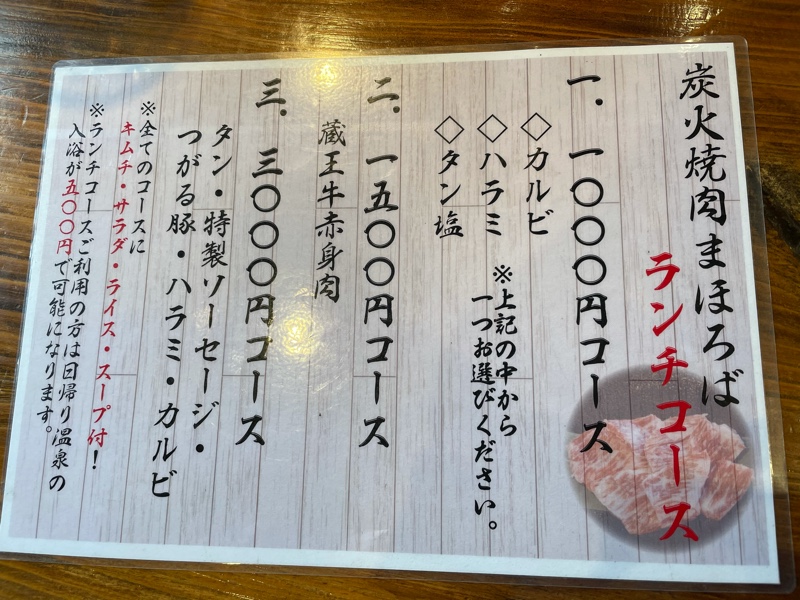 炭火焼肉まほろば
ランチコース
一．一〇〇〇円コース
◇カルビ
◇ハラミ
◇タン塩
※上記の中から
一つお選びください。
二．一五〇〇円コース
蔵王牛赤身肉
三．三〇〇〇円コース
タン・特製ソーセージ・
つがる豚・ハラミ・カルビ
※全てのコースに
キムチ・サラダ・ライス・スープ付！
※ランチコースご利用の方は日帰り温泉の
入浴が五〇〇円で可能になります。